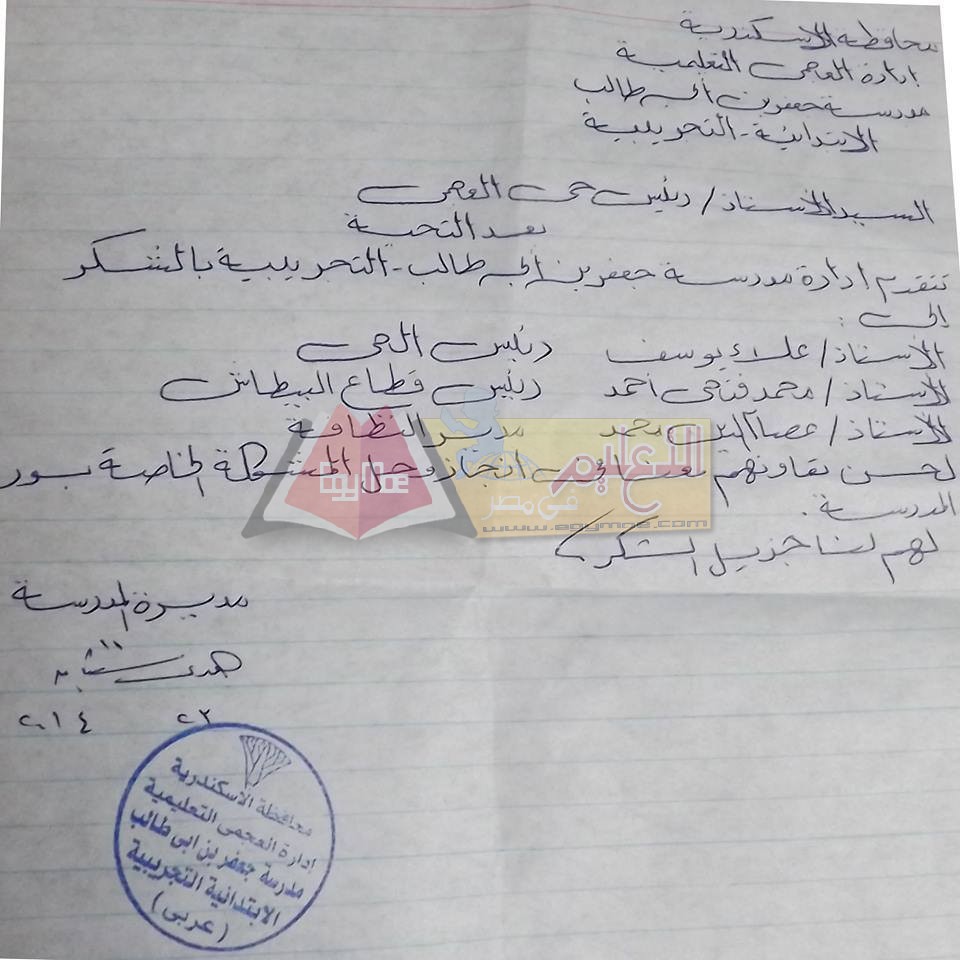 محافظة الاسكندرية
إدارة العجمى التعلمية
مدرسة جعفر بن أبى طالب
الابتدائية - التجريبية
السيد الأستاذ / رئيس حى العجمى
بعد التحية
تتقدم ادارة مدرسة جعفر بن ابى طالب - التجريبية بالشكر
إلى :
الأستاذ / علاء يوسف رئيس الحى
الأستاذ / محمد فتحى أحمد رئيس قطاع البيطاش
الأستاذ / محمد مدير النظافة
لحسن تعاونهم معنا فى انجاز وحل المشكلة الخاصة بسور
المدرسة .
لهم منا جزيل الشكر
مديرة المدرسة
هدى
٢٠١٤
التعليم
فى مصر
www.egymoe.com
محافظة الاسكندرية
إدارة العجمى التعليمية
مدرسة جعفر بن ابى طالب
الابتدائية التجريبية
(عربى)